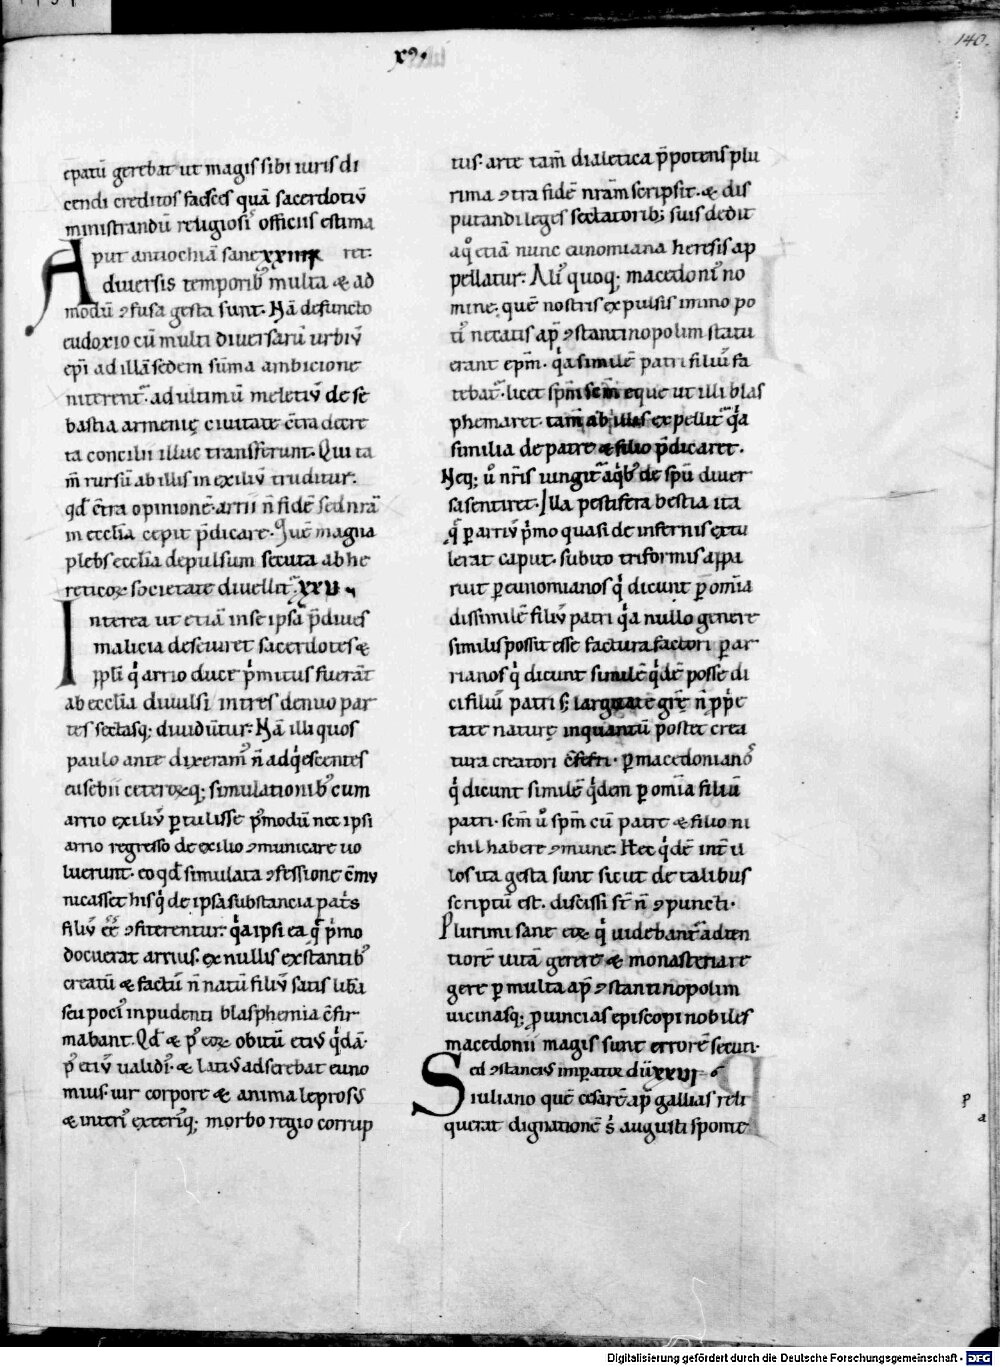 140.
xꝰ.
ep̄atū gerebat ut magis sibi iuris di
cendi creditos fasces quā sacerdotiū
ministrandū religiosi officiis estima
Aput antiochiā sane xxiiii ret:
diuersis temporibꝰ multa & ad
modū ꝯfusa gesta sunt. Nā defuncto
eudoxio cū multi diuersarū urbiū
ep̄i ad illā sedem sūma ambicione
niterent᷑. ad ultimū meletiū de se
bastia armenię ciuitate c̄tra decre
ta concilii illuc transferunt. Qui ta
m̄ rursū ab illis in exiliū truditur.
qd̄ c̄tra opinionē arrii n̄ fidē sed nr̄ā
in ecclīa cepit p̄dicare. Quē magna
plebs ecclīa depulsum secuta ab he
reticoꝝ societate diuellit᷑. xxv
Interea ut etiā in se ipsa p̄diues
malicia deseuiret sacerdotes &
ppl̄i qͥ arrio duce pͥmitus fuerāt
ab ecclīa diuulsi in tres denuo par
tes sectasq; diuidūtur. Nā illi quos
paulo ante dixeramꝰ n̄ adqͥescentes
eusebii ceteroꝝq; simulationibꝰ cum
arrio exiliū ꝑtulisse pꝰmodū nec ipsi
arrio regresso de exilio ꝯmunicare uo
luerunt. eo qd̄ simulata ꝯfessione c̄mu
nicasset his qͥ de ipsa substancia pat̄s
filiū eē ꝯfiterentur. qͥa ipsi ea qͣ pͥmo
docuerat arrius. ex nullis exstantibꝰ
creatū & factū n̄ natū filiū satis lib̄a
seu pociꝰ inpudenti blasphemia c̄fir
mabant. Qd̄ & pꝰ eoꝝ obitū etiꝰ qͥdā.
pꝰ etiū ualidiꝰ. & latiꝰ adserebat euno
mius. uir corpore & anima leprosꝰ
& interiꝰ exteriꝰq; morbo regio corrup
tus. arte tam̄ dialetica p̄potens plu
rima ꝯtra fidē nr̄am scripsit. & dis
putandi leges sectatorib; suis dedit
a qͦ etiā nunc eunomiana heresis ap
pellatur. Aliꝰ quoq; macedoniꝰ no
mine. quē nostris expulsis immo po
tiꝰ necatis ap̄ ꝯstantinopolim statu
erant ep̄m. qͥa similē patri filiū fa
tebat᷑. licet sp̄m sc̄m eque ut illi blas
phemaret. tam̄ ab illis expellit᷑ qͥa
similia de patre & filio p̄dicaret.
Neq; u̇ nr̄is iungit᷑ a qͥbꝰ de sp̄u diuer
sa sentiret. Illa pestifera bestia ita
qͣ ꝑ arriū pͥmo quasi de infernis extu
lerat caput. subito triformis appa
ruit ꝑ eunomianos qͥ dicunt ꝑ om̄ia
dissimilē filiū patri qͥa nullo genere
similis possit esse factura factori ꝑ ar
rianos qͥ dicunt similē qͥdē posse di
ci filiū patri s; largitate gr̄ę n̄ ꝓpͥe
tate naturę inquantū posset crea
tura creatori c̄ferri. ꝑ macedonianoꝰ
qͥ dicunt similē qͥdem ꝑ om̄ia filiū
patri. sc̄m u̇ sp̄m cū patre & filio ni
chil habere ꝯmune. Hec qͥdē int̄ il
los ita gesta sunt sicut de talibus
scriptū est. discissi sr̄ n̄ ꝯpuncti.
Plurimi sane eoꝝ qͥ uidebant᷑ adten
tiorē uitā gerere & monasteria re
gere ꝑ multa ap̄ ꝯstantinopolim
uicinasq; ꝓuincias episcopi nobiles
macedonii magis sunt errorē secuti.
Sed ꝯstanciꝰ imperator dū xxvi
iuliano quē cesarē ap̄ gallias reli
querat dignationē sͥ augusti sponte
p
a
Digitalisierung gefördert durch die Deutsche Forschungsgemeinschaft - DFG